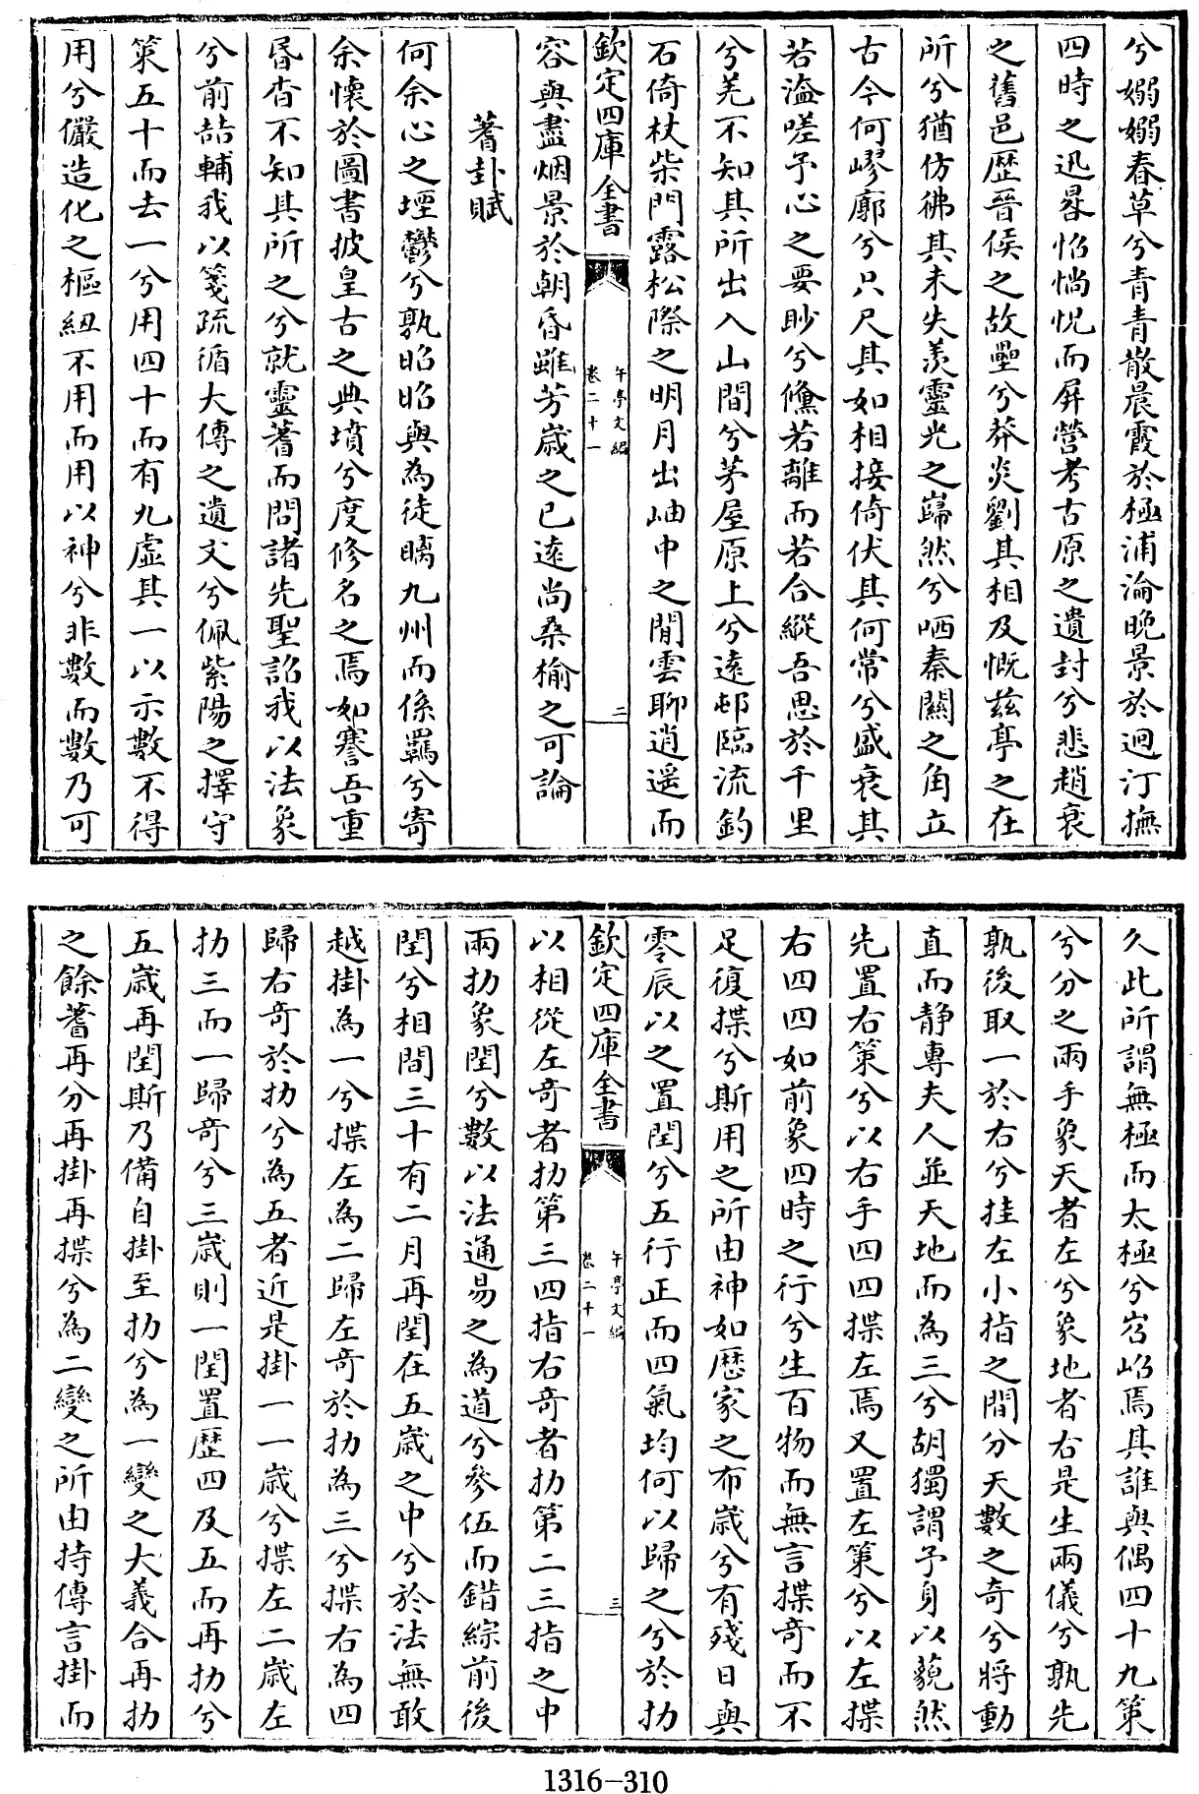 兮嫋嫋春草兮青青散晨霞於極浦淪晩景於迥汀撫
四時之迅晷怊惝怳而屏營考古原之遺封兮悲趙衰
之舊邑歴晉侯之故壘兮莽炎劉其相及慨兹亭之在
所兮猶仿彿其未失羨靈光之巋然兮哂秦關之角立
古今何嵺廓兮只尺其如相接倚伏其何常兮盛衰其
若溘嗟予心之要眇兮儵若離而若合縱吾思於千里
兮羌不知其所出入山間兮茅屋原上兮逺邨臨流釣
石倚杖柴門露松際之明月出岫中之閒雲聊逍遥而
欽定四庫全書
午亭文編
卷二十一
二
容與盡烟景於朝昏雖芳歳之已逺尚桑榆之可論
蓍卦賦
何余心之堙鬱兮孰昭昭與為徒矖九州而係羈兮寄
余懷於圖書披皇古之典墳兮度修名之焉如謇吾重
昏杳不知其所之兮就靈蓍而問諸先聖詔我以法象
兮前喆輔我以箋疏循大傳之遺文兮佩紫陽之擇守
策五十而去一兮用四十而有九虛其一以示數不得
用兮儼造化之樞紐不用而用以神兮非數而數乃可
久此所謂無極而太極兮岧㟅焉其誰與偶四十九策
兮分之兩手象天者左兮象地者右是生兩儀兮孰先
孰後取一於右兮挂左小指之間分天數之奇兮將動
直而靜專夫人並天地而為三兮胡獨謂予身以藐然
先置右策兮以右手四四揲左焉又置左策兮以左揲
右四四如前象四時之行兮生百物而無言揲奇而不
足復揲兮斯用之所由神如歴家之布歳兮有殘日與
零辰以之置閏兮五行正而四氣均何以歸之兮於扐
欽定四庫全書
午亭文編
卷二十一
三
以相從左奇者扐第三四指右奇者扐第二三指之中
兩扐象閏兮數以法通易之為道兮參伍而錯綜前後
閏兮相間三十有二月再閏在五歳之中兮於法無敢
越掛為一兮揲左為二歸左奇於扐為三兮揲右為四
歸右奇於扐兮為五者近是掛一一歳兮揲左二歳左
扐三而一歸奇兮三歳則一閏置歴四及五而再扐兮
五歳再閏斯乃備自掛至扐兮為一變之大義合再扐
之餘蓍再分再掛再揲兮為二變之所由持傳言掛而
1316-310